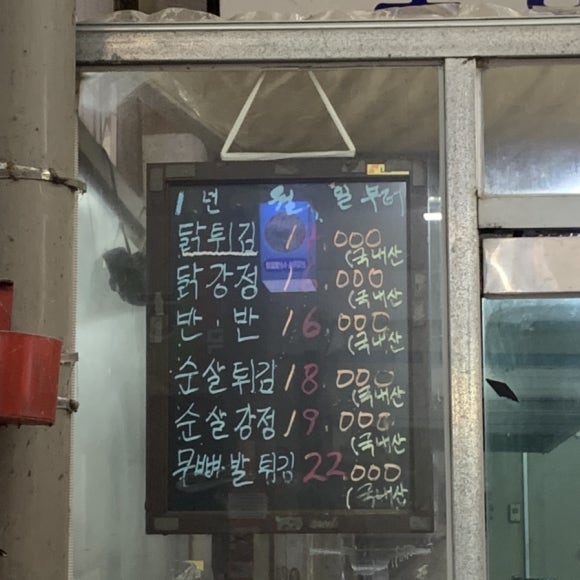 1 년 월 일 부터
닭튀김 .000
(국내산
닭강정 .000
(국내산
반.반 16.000
(국내산
순살튀김 18.000
(국내산
순살강정 19.000
(국내산
무뼈.발튀김 22.000
(국내산